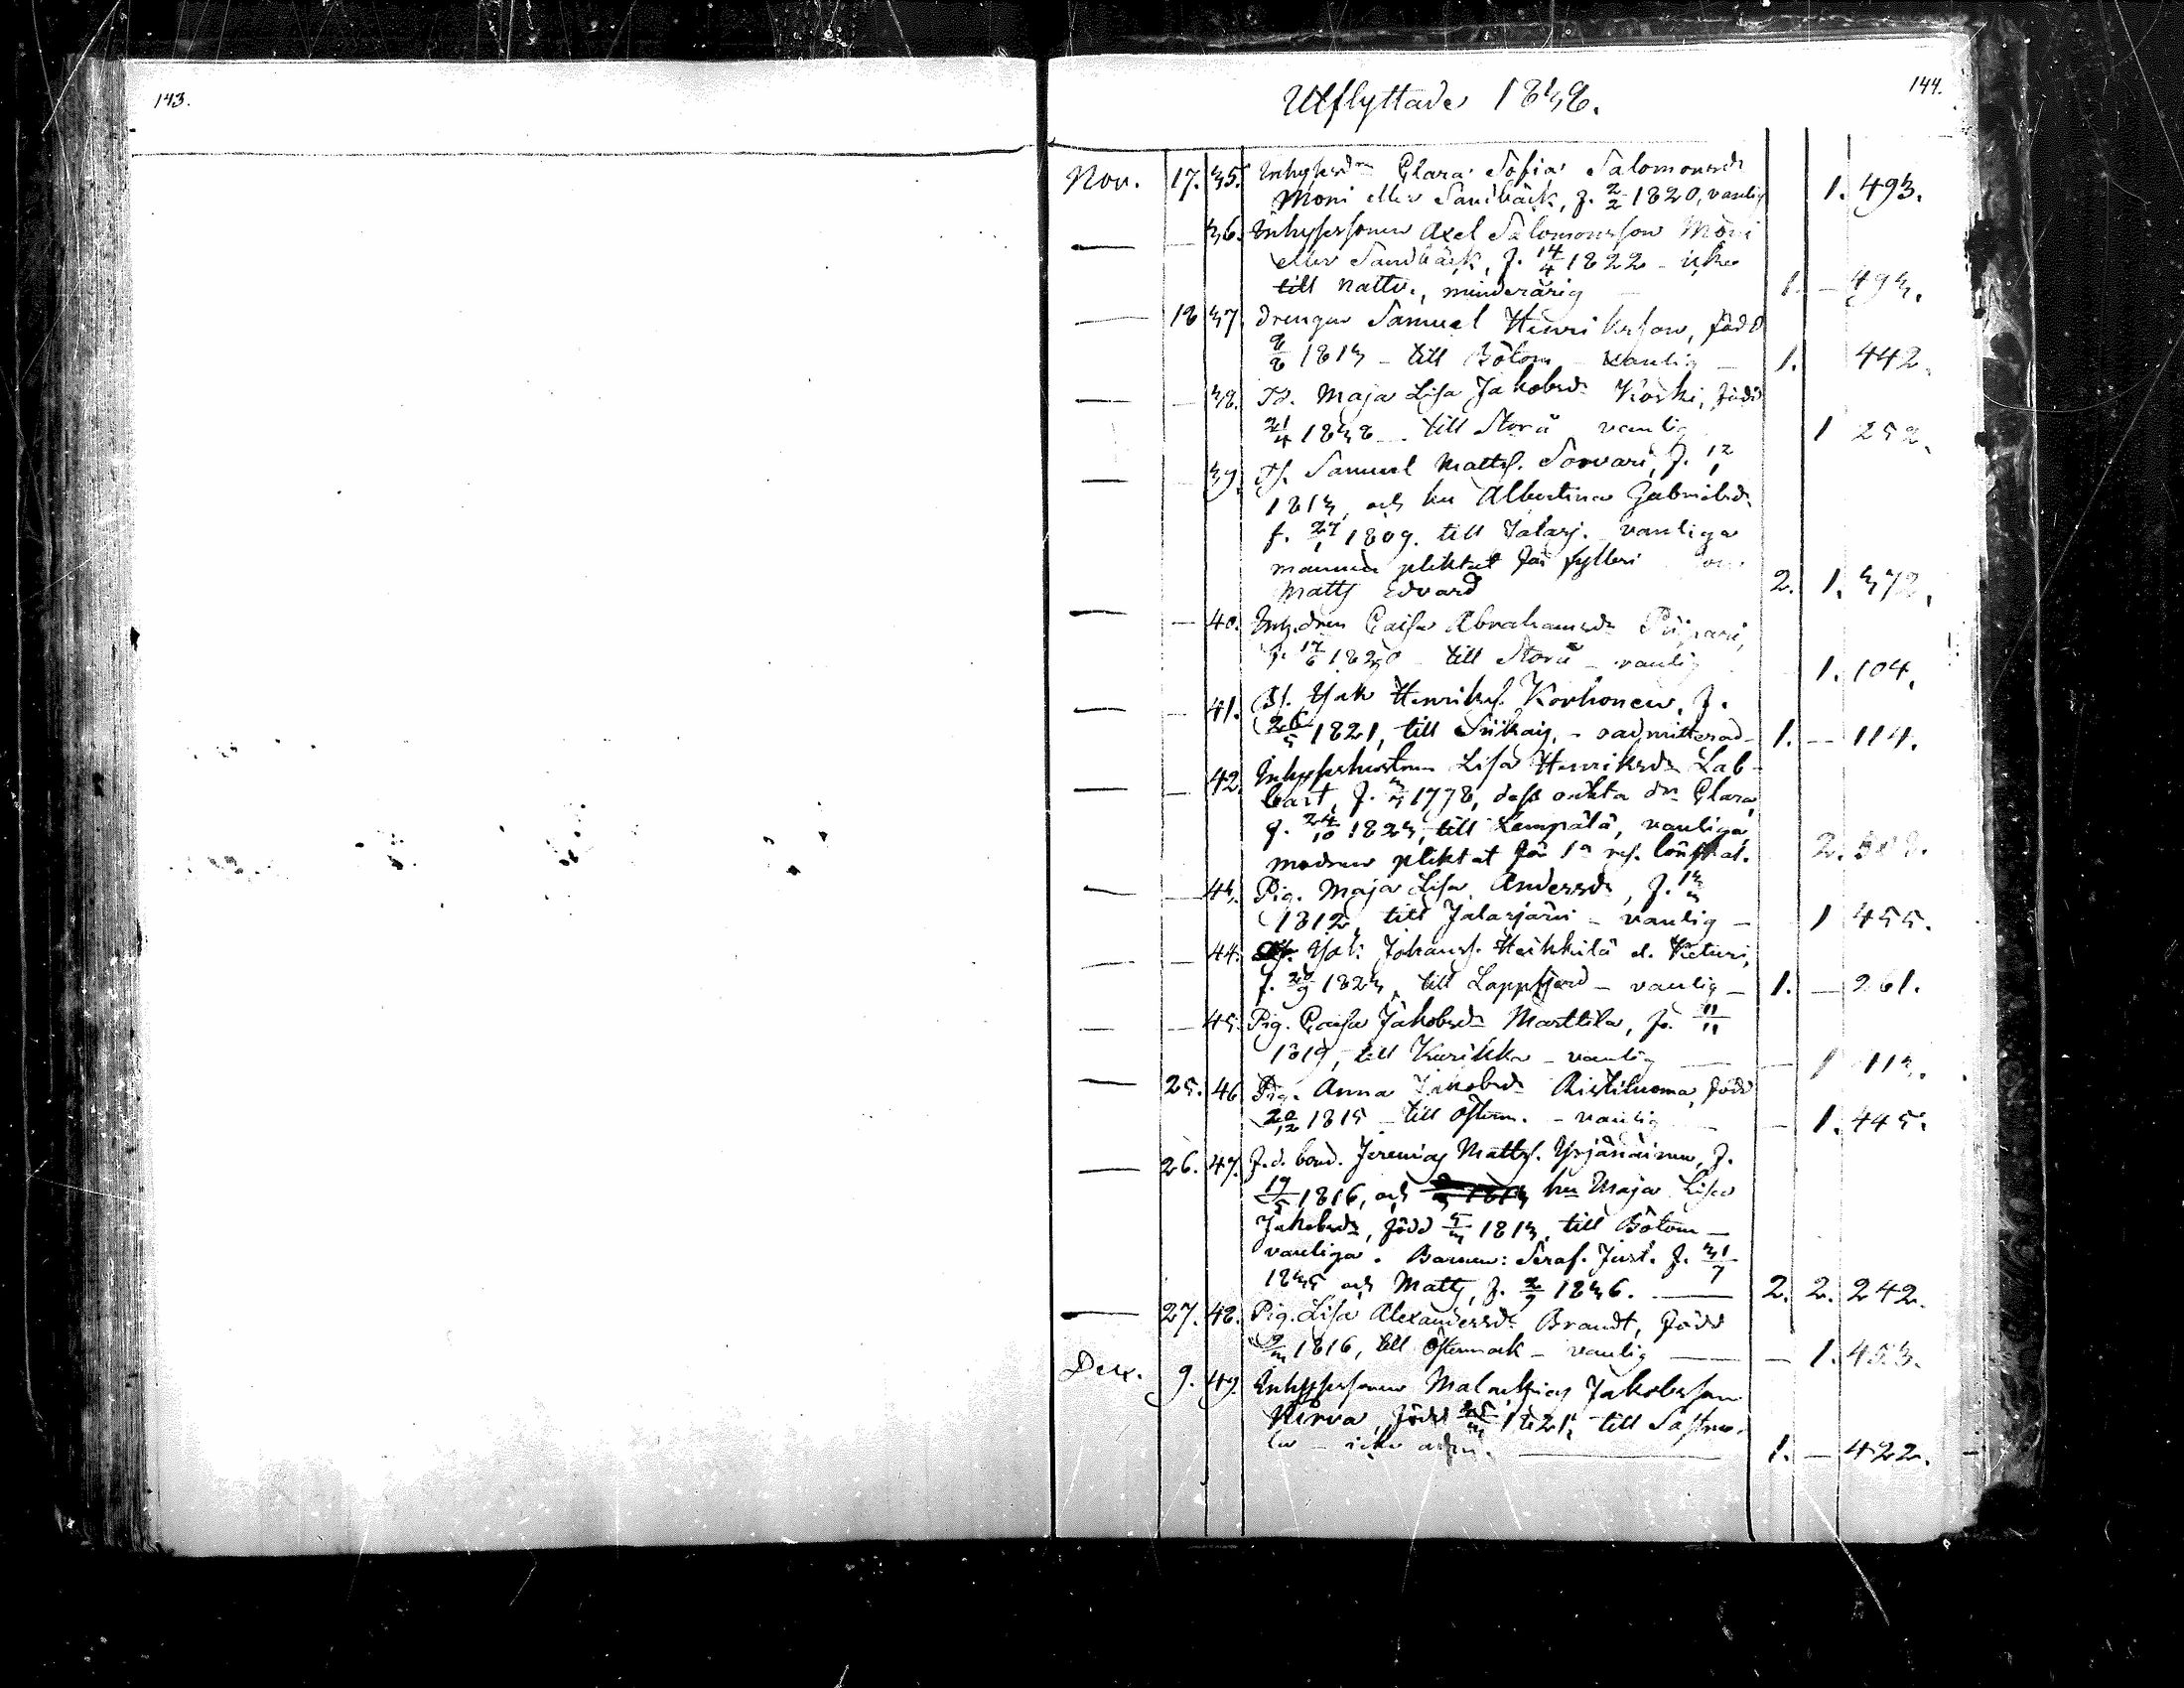 143.
144.
Utflyttade 1838.
Nov. 17. 35. Inhysesdn Clara Sofia Salomonsdr
Moni eller Sandbäck, f. 2/2 1820, vanlig 1. 493.
— — 36. Inhysessonen Axel Salomonsson Moni
eller Sandbäck, f. 14/4 1822 - icke
till nattv., minderårig — 1. — 493.
— 18 37. Drengen Samuel Henriksson, född
8/8 1813 - till Bötom - vanlig — 1. 442.
— — 38. Maja Lisa Jakobsdr Koski, född
till Storå vanlig 1 252.
— — 39. Samuel Matts. Sorvari, f. 12/1
1813, och hu Albertina Gabrielsdr
f. 27/1 1809. till Jalasj. vanliga
mannen pliktat för fylleri
Matts Edvard 2. 1. 372.
— — 40. Inh.dren Caisa Abrahamsdr
f. 17/6 till Storå - vanlig 1. 104.
— — 41. Isak Henriks. Korhonen, f.
26/5 1821, till Siikaj. - oadmitterad - 1. — 114.
— — 42. Inhyseshustrun Lisa Henriksdr Lab-
bart, f. 1778, dess oäkta dr Clara,
f. 24/10 1823, till Lempälä, vanliga
modren pliktat för 1a res. lönskal. 2.
— — 43. Pig. Maja Lisa Andersdr, f. 13/3
1812, till Jalasjärvi - vanlig — 1 455.
— — 44. Johans. Heikkilä el. Keturi,
f. 1823, till Lappfjerd - vanlig — 1. — 261.
— — 45. Pig. Caisa Jakobsdr Marttila, f. 11/11
1819, till Kurikka - vanlig — 1 113.
— 25. 46 Pig. Anna Jakobsdr Ristiluoma, född
20/12 1815 - till Österm. - vanlig — 1. 445.
— 26. 47. F.d. bond. Jeremias Matts. Yrjänäinen, f.
19/5 1816, och hu Maja Lisa
Jakobsdr, född 5/3 1813, till Bötom —
vanliga. Barnen: Seraf. Just. f. 31/7
1835 och Matts, f. 2/9 1836. — 2. 2. 242.
— 27. 48. Pig. Lisa Alexandersdr Brandt, född
9/3 1816, till Östermark - vanlig — — 1. 453.
Dec. 9. 49 Inhysessonen Malachias Jakobsson
Kirva, född till Sastmo-
la - icke adm. — 1. — 422.